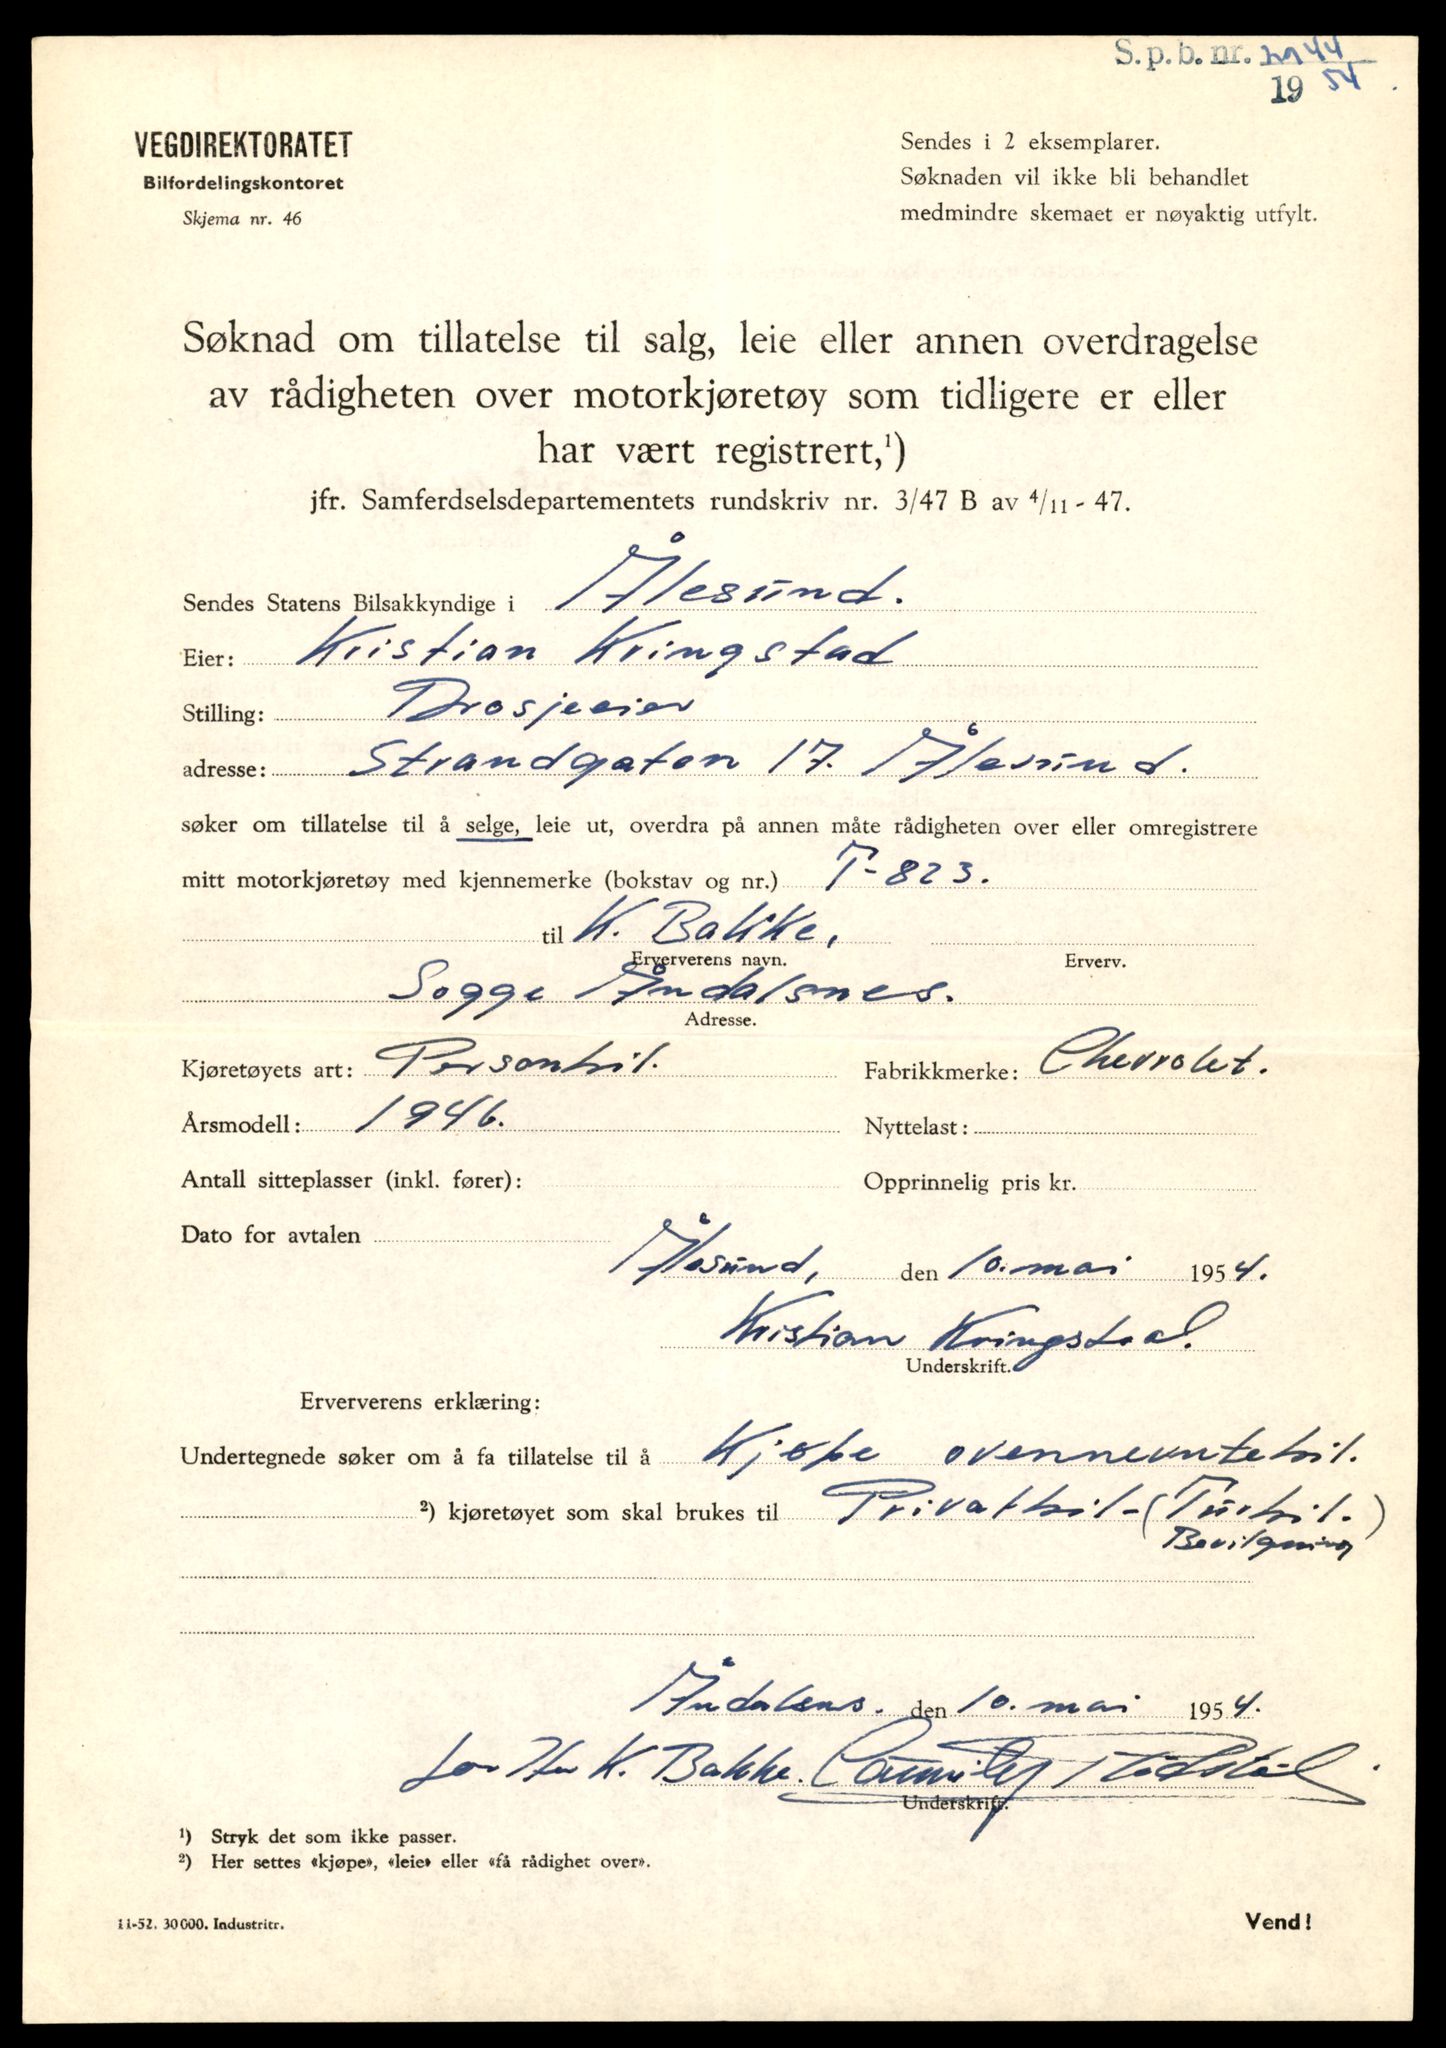 S.p.b. nr. 44
19 54
VEGDIREKTORATET
Bilfordelingskontoret
Skjema nr. 46
Sendes i 2 eksemplarer.
Søknaden vil ikke bli behandlet
medmindre skemaet er nøyaktig utfylt.
Søknad om tillatelse til salg, leie eller annen overdragelse
av rådigheten over motorkjøretøy som tidligere er eller
har vært registrert,¹)
jfr. Samferdselsdepartementets rundskriv nr. 3/47 B av 4/11 - 47.
Sendes Statens Bilsakkyndige i Ålesund.
Eier: Kristian Kringstad
Stilling: Drosjeeier
adresse: Strandgaten 17. Ålesund.
søker om tillatelse til å selge, leie ut, overdra på annen måte rådigheten over eller omregistrere
mitt motorkjøretøy med kjennemerke (bokstav og nr.) T-823.
til K. Bakke,
Erververens navn. Erverv.
Sogge Åndalsnes.
Adresse.
Kjøretøyets art: Personbil. Fabrikkmerke: Chevrolet.
Årsmodell: 1946. Nyttelast:
Antall sitteplasser (inkl. fører): Opprinnelig pris kr.
Dato for avtalen
Ålesund, den 10. mai 1954.
Kristian Kringstad.
Underskrift.
Erververens erklæring:
Undertegnede søker om å fa tillatelse til å Kjøpe ovennevntebil.
²) kjøretøyet som skal brukes til Privatbil-(Turbil.
Bevilgning)
Åndalsns. den 10. mai 1954.
for K. Bakke.
Underskrift.
¹) Stryk det som ikke passer.
²) Her settes «kjøpe», «leie» eller «få rådighet over».
11-52. 30000. Industritr.
Vend!